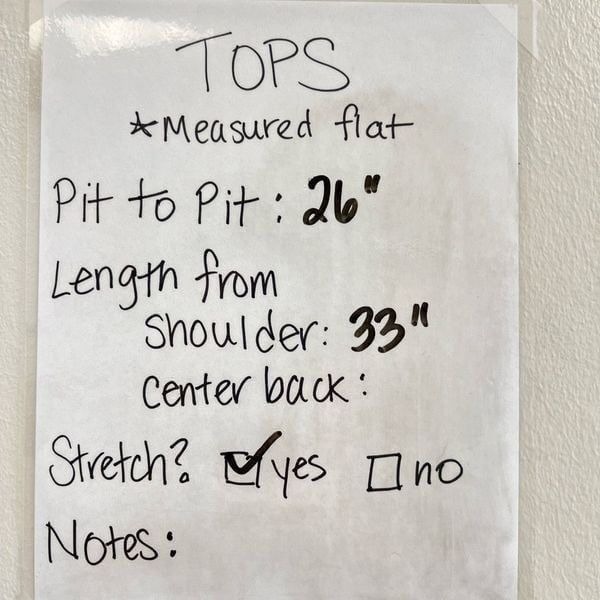 TOPS
*Measured flat
Pit to Pit: 26"
Length from
Shoulder: 33"
Center back:
Stretch? ☑ yes ☐ no
Notes: